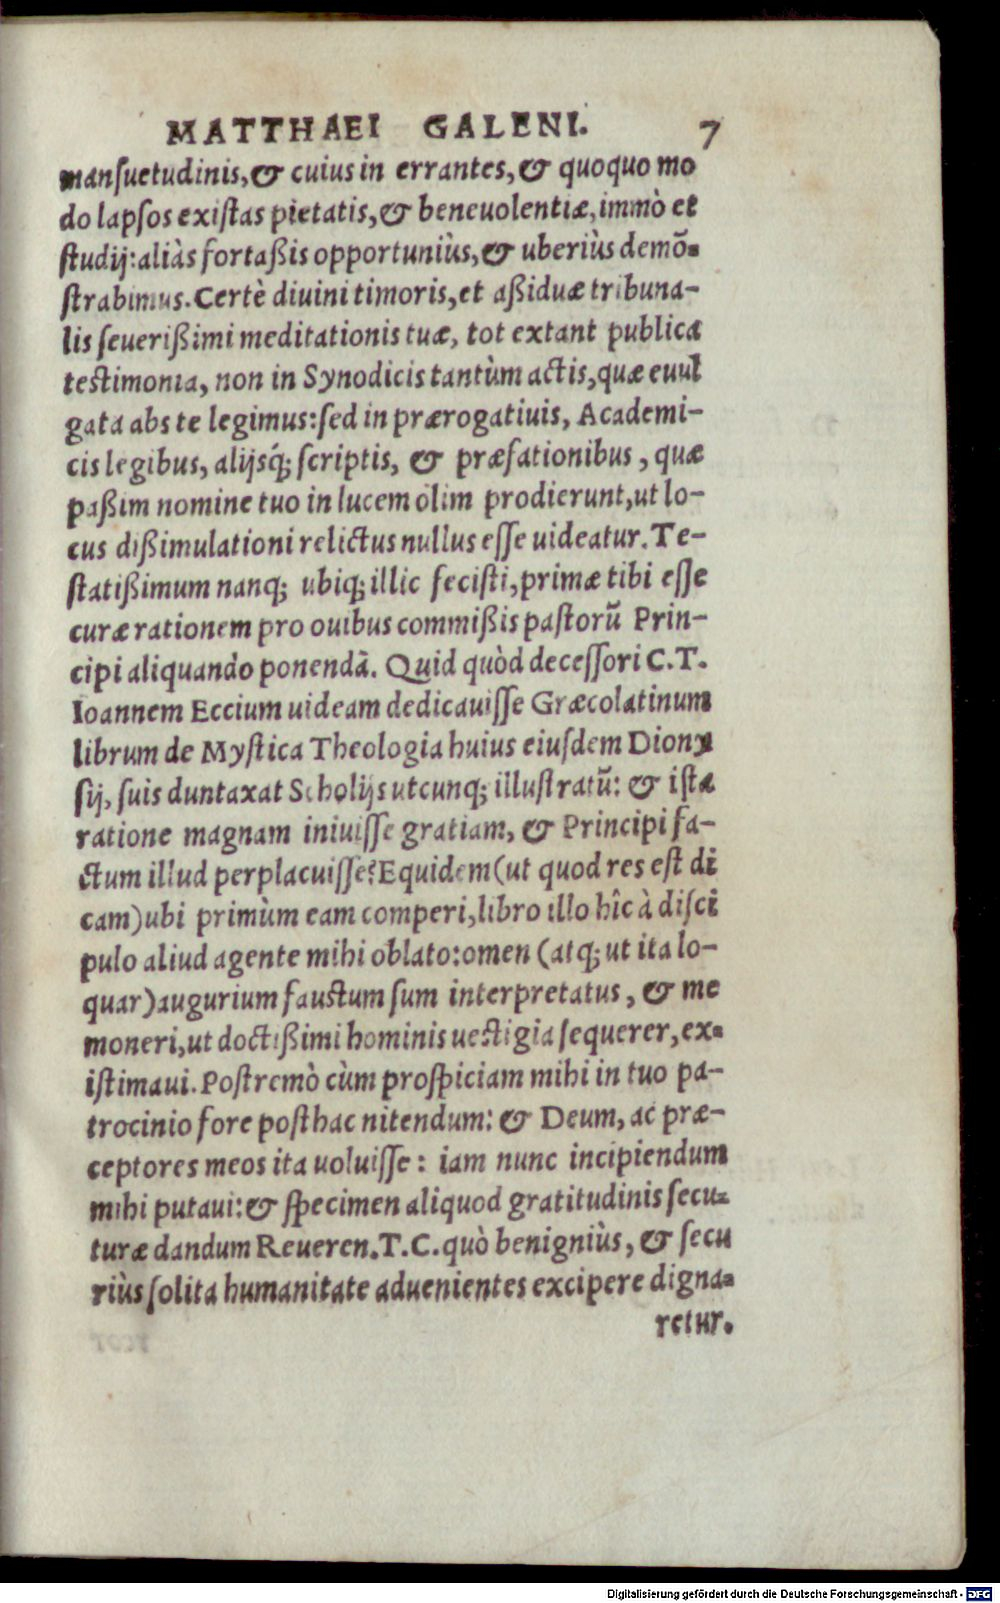 MATTHAEI GALENI. 7
manſuetudinis, & cuius in errantes, & quoquo mo
do lapſos exiſtas pietatis, & beneuolentiæ, immò et
ſtudij: aliàs fortaßis opportuniùs, & uberiùs demõ⸗
ſtrabimus. Certè diuini timoris, et aßiduæ tribuna-
lis ſeuerißimi meditationis tuæ, tot extant publica
teſtimonia, non in Synodicis tantùm actis, quæ euul
gata abs te legimus: ſed in prærogatiuis, Academi-
cis legibus, alijsq́; ſcriptis, & præfationibus, quæ
paßim nomine tuo in lucem olim prodierunt, ut lo-
cus dißimulationi relictus nullus eſſe uideatur. Te-
ſtatißimum nanq; ubiq; illic feciſti, primæ tibi eſſe
curæ rationem pro ouibus commißis paſtorũ Prin-
cipi aliquando ponendã. Quid quòd deceſſori C. T.
Ioannem Eccium uideam dedicauiſſe Græcolatinum
librum de Myſtica Theologia huius eiuſdem Diony
ſij, ſuis duntaxat Scholijs utcunq; illuſtratũ: & iſta
ratione magnam iniuiſſe gratiam, & Principi fa-
ctum illud perplacuiſſe? Equidem (ut quod res eſt di
cam) ubi primùm eam comperi, libro illo hîc à diſci
pulo aliud agente mihi oblato: omen (atq; ut ita lo-
quar) augurium fauſtum ſum interpretatus, & me
moneri, ut doctißimi hominis ueſtigia ſequerer, ex⸗
iſtimaui. Poſtremò cùm proſpiciam mihi in tuo pa-
trocinio fore poſthac nitendum: & Deum, ac præ-
ceptores meos ita uoluiſſe: iam nunc incipiendum
mihi putaui: & ſpecimen aliquod gratitudinis ſecu⸗
turæ dandum Reueren. T. C. quò benigniùs, & ſecu
riùs ſolita humanitate aduenientes excipere digna⸗
retur.
Digitalisierung gefördert durch die Deutsche Forschungsgemeinschaft - DFG